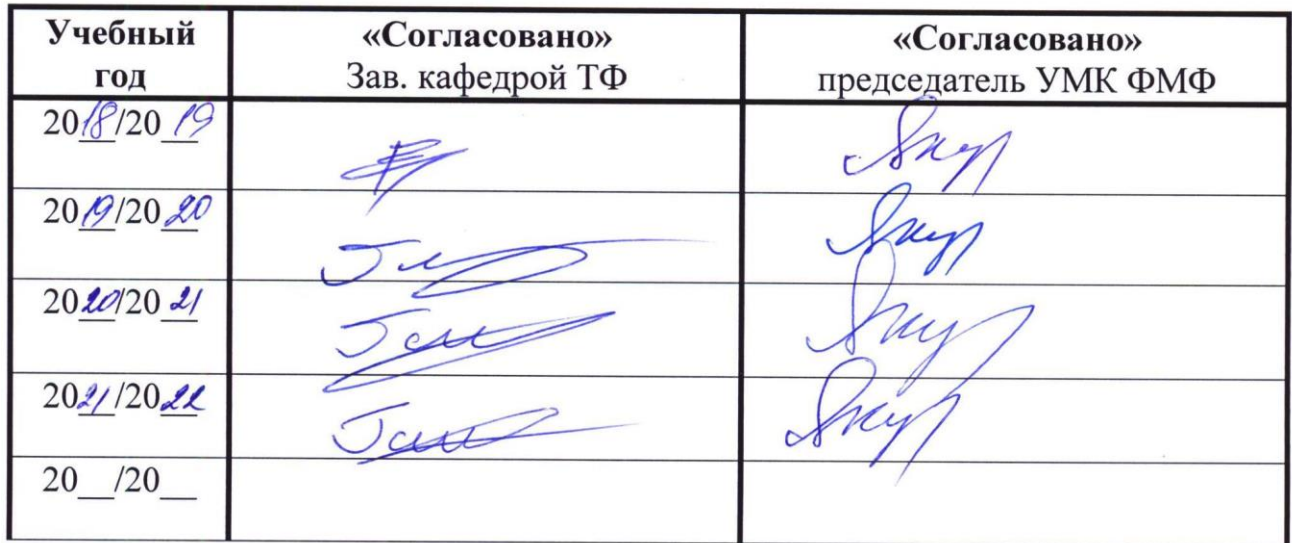 Учебный год
«Согласовано»
Зав. кафедрой ТФ
«Согласовано»
председатель УМК ФМФ
2018/2019
2019/2020
2020/2021
2021/2022
20__/20__